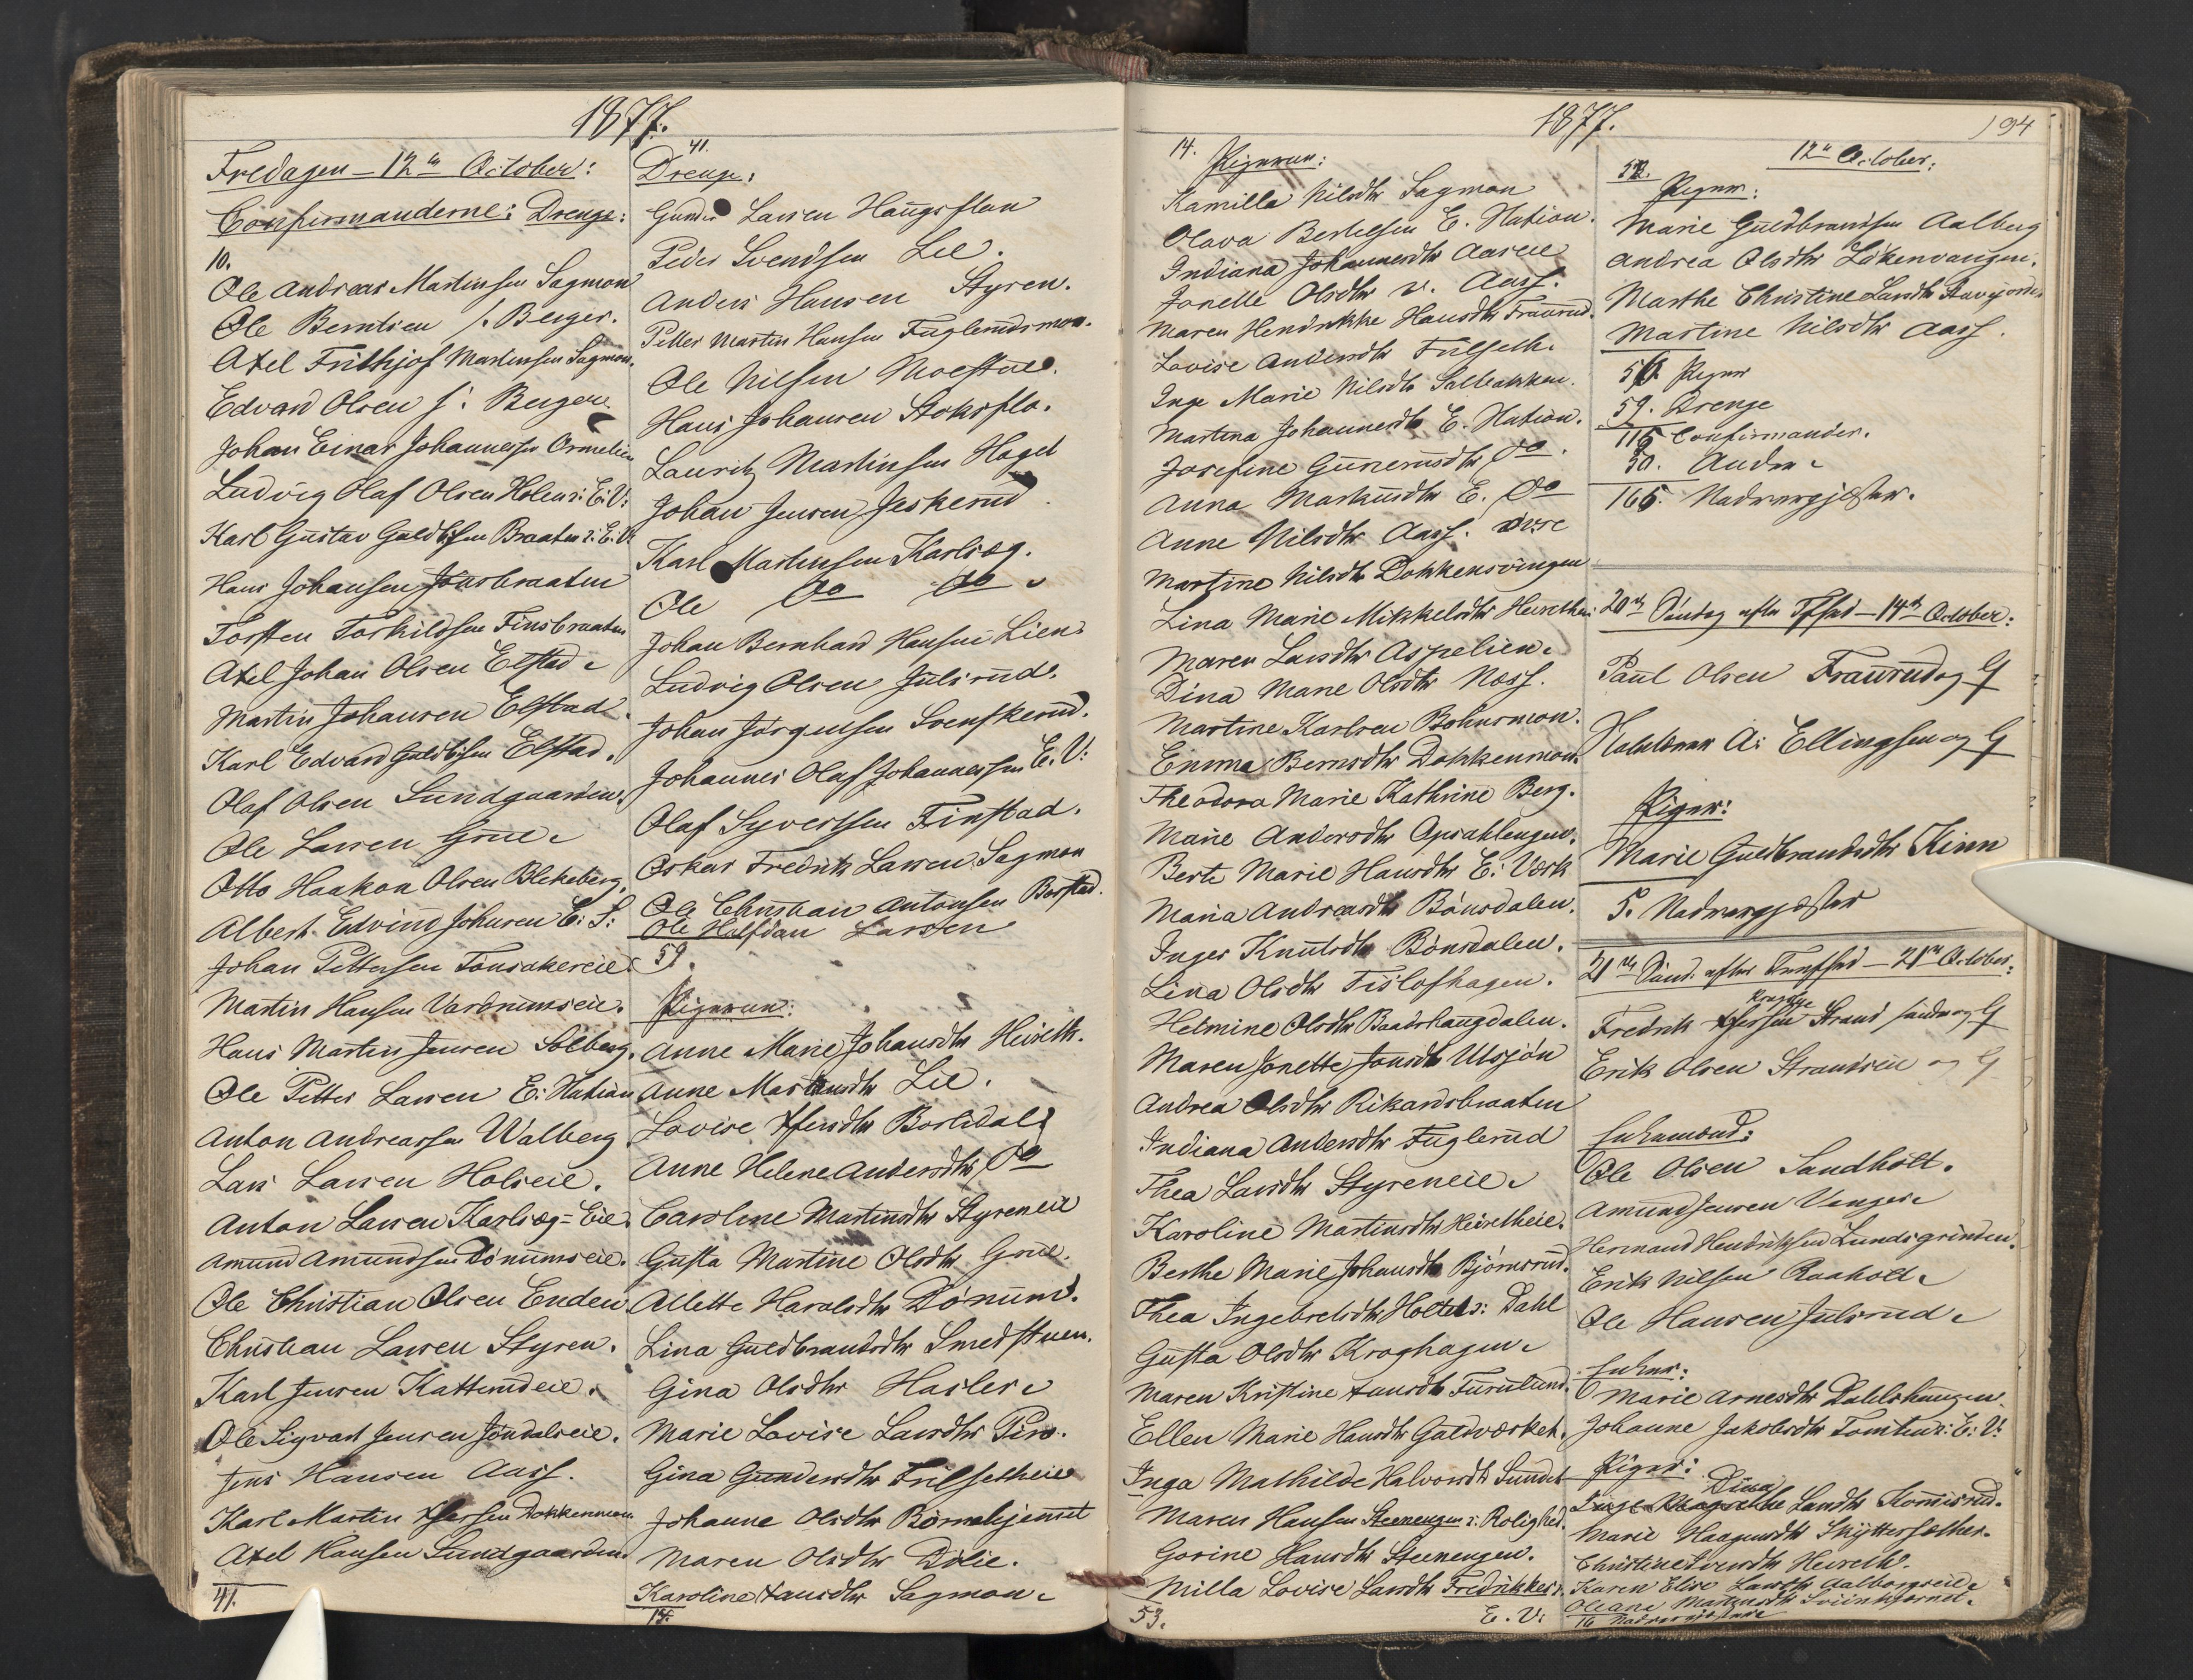 1877.
Fredagen - 12te October:
Confirmanderne: Drenge:
10.
Ole Andreas Martinsen Sagmon
Ole Berntsen s. Berger.
Axel Frithjof Martinsen Sagmon.
Edvard Olsen s: Berger
Johan Einar Johannesen Ormelien
Ludvig Olaf Olsen Holen: E: V:
Karl Gustav Guldbsen Braaten: E: V:
Hans Johansen Jönsbraaten
Torsten Torkildsen Finsbraaten
Axel Johan Olsen Elstad
Martin Johansen Elstad.
Karl Edvard Guldbsen Elstad.
Olaf Olsen Sundgaarden.
Ole Larsen Grue.
Otto Haakon Olsen Blekeberg.
Albert Edvind Johnsen E: S:
Johan Pettersen Tönsakereie.
Martin Hansen Vardnumseie.
Hans Martin Jensen Solberg.
Ole Petter Larsen E: Station
Anton Andreassen Walberg
Lars Larsen Holseie.
Anton Larsen Karlsøg-Eie.
Amund Amundsen Dönumseie.
Ole Christian Olsen Enden
Christian Larsen Styren.
Karl Jensen Katterudeie.
Ole Sigvart Jensen Jöndalseie.
Jens Hansen Aass.
Karl Martin Dokkenmoen
Axel Hansen Sundgaarden.
41.
41.
Drenge:
Gunder Larsen Haugsflan
Peder Svendsen Lie.
Anders Hansen Styren.
Petter Martin Hansen Fuglerudsmon.
Ole Nilsen Moestue.
Hans Johansen Stoksflo.
Lauritz Martinsen Haget
Johan Jensen Jeskerud.
Karl Martinsen Karlsøg.
Ole do do
Johan Bernhard Hansen Lien
Ludvig Olsen Julsrud.
Johan Jörgensen Svenskerud.
Johannes Olaf Johannessen E: V:
Olaf Syvertsen Finstad.
Oskar Fredrik Larsen Sagmon
Ole Christian Antonsen Borstad.
Ole Halfdan Larsen
59.
Pigerne:
Anne Marie Johansdtr Heiseth.
Anne Martinsdtr Lie.
Lovise Borlidal
Anne Helene Andersdtr do
Caroline Martinsdtr Styreneie
Gusta Martine Olsdtr Grue.
Allette Haralsdtr Dönnum.
Lina Guldbrandsdtr Smedstuen.
Gina Olsdtr Hasler
Marie Lovise Larsdtr Piro.
Gina Gundersdtr Fulsetheie
Johanne Olsdtr Börnehjemmet
Maren Olsdtr Dölie.
Karoline Hansdtr Sagmon
14.
1877.
194
14.
Pigerne:
Kamilla Nilsdtr Sagmon
Olava Bertelsen E. Station.
Indiana Johannesdtr Aaseie
Jonette Olsdtr v. Aass.
Maren Hendrikke Hansdtr Traurud.
Lovise Andersdtr Fulseth.
Inge Marie Nilsdtr Salbakken.
Martina Johannesdtr E. Station.
Josefine Gunerusdtr do.
Anna Markusdtr E. do
Anne Nilsdtr Aass. øvre
Martine Nilsdtr Dokkensvingen
Lina Marie Mikkelsdtr Heisethei
Maren Larsdtr Aspelien
Dina Marie Olsdtr Næss.
Martine Karlsen Bohnsmon.
Emma Berntsdtr Dokkenmon.
Theodora Marie Kathrine Berg.
Marie Andersdtr Opsahlengen.
Berte Marie Hansdtr E: Værk
Maria Andreasdtr Bönsdalen.
Inger Knutsdtr Bönsdalen.
Lina Olsdtr Tislofhagen.
Helmine Olsdtr Baadshaugdalen.
Maren Jonette Jonsdtr Utsjön
Andrea Olsdtr Rikardsbraaten
Indiana Andersdtr Fuglerud
Thea Larsdtr Styreneie
Karoline Martinsdtr Heisetheie.
Berthe Marie Johansdtr Björnsrud.
Thea Ingebretsdtr Holtet s: Dahl
Gusta Olsdtr Kroghagen
Maren Kristine Hansdtr Furulund.
Ellen Marie Hansdtr Guldværket.
Inga Mathilde Halvorsdtr Sundet
Maren Hansen Steenengen s: Rolighed.
Gorine Hansdtr Steenengen.
Milla Lovise Larsdtr Fredrikkes
53. E. V:
12te October:
52.
Piger:
Marie Guldbrandsen Aalberg
Andrea Olsdtr Lökenvangen.
Marthe Christine Larsdtr
Martine Nilsdtr Aass.
56. Piger
59. Drenge
115 Confirmander.
50. Andre
165. Nadvergjester.
20de Söndag efter Tfhed - 14de October:
Paul Olsen Traurud og G
A: Ellingsen og G
Piger:
Marie Guldbrandsdtr Kinn
5. Nadvergjester
21de Sönd. efter Trefhed - 21de October:
Fredrik Strand og G
Erik Olsen Strandseie og G
Enkemænd:
Ole Olsen Sandholt.
Amund Jensen Venger
Hermand Hendriksen Lundsgrinden.
Erik Nilsen Raaholt
Ole Hansen Julsrud
Enker:
Marie Arnesdtr Dahlshaugen.
Johanne Jakobsdtr Tomten: E: V:
Piger:
Dina
Larsdtr Kommisrud.
Marie Haagensdtr Skyttersæther.
Christine Iversdtr Heiseth.
Karen Elise Larsdtr Aalborgseie
Oleane Martinsdtr
16 Nadvergjester